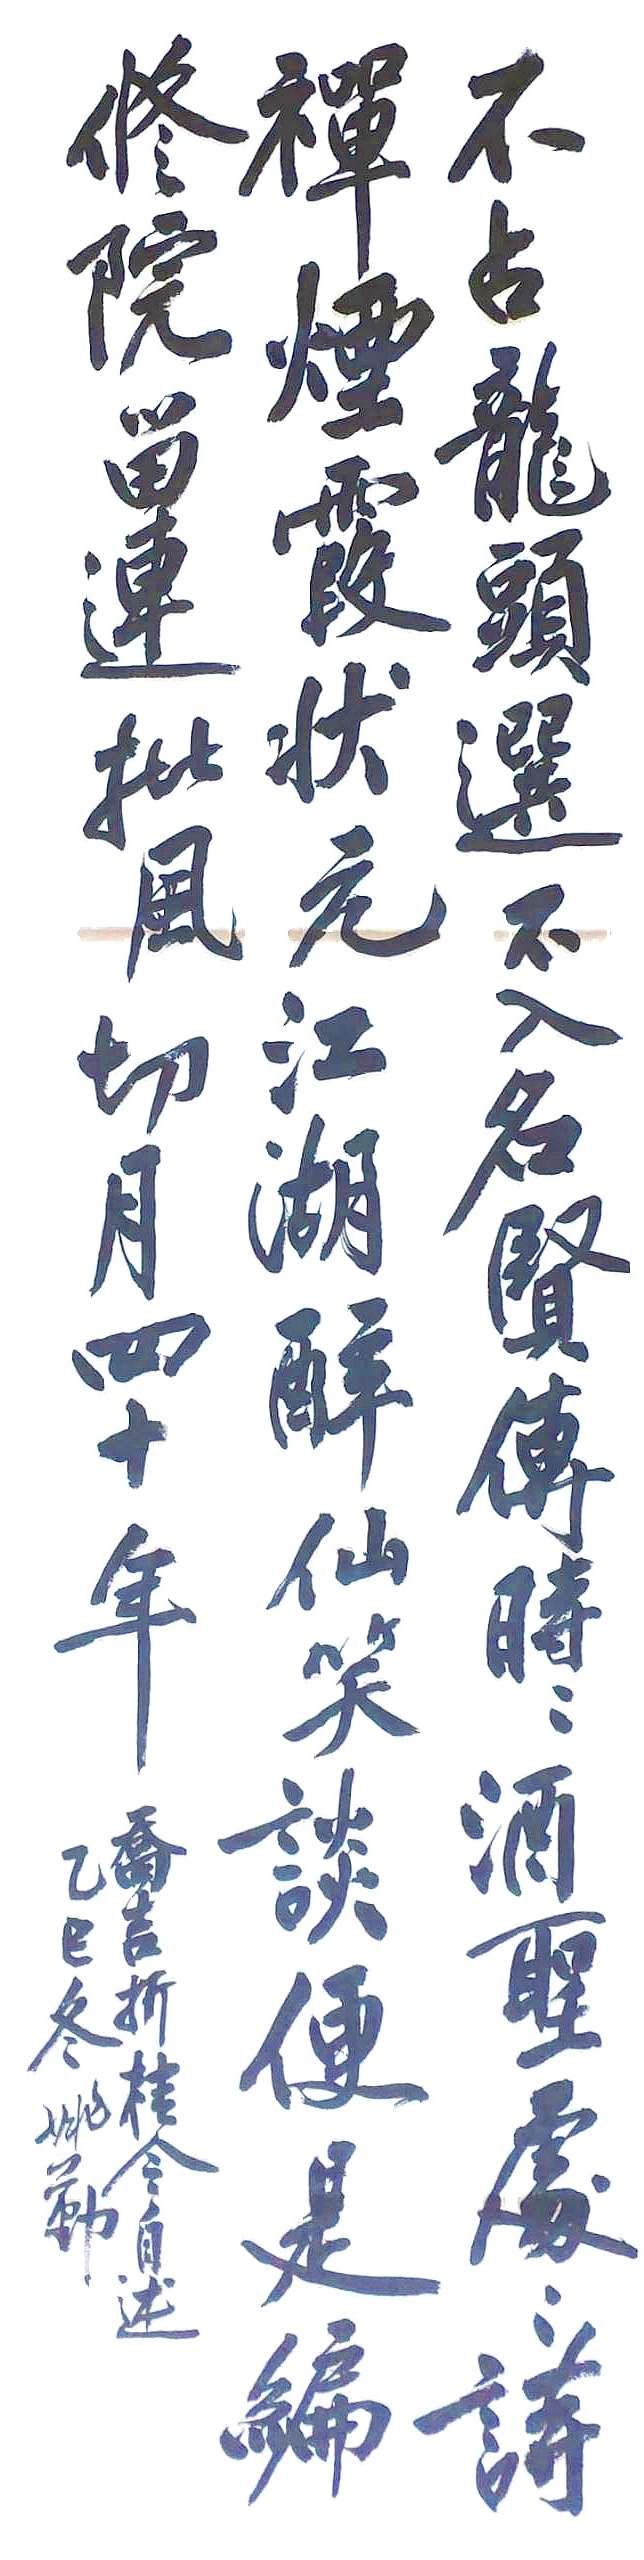 不占龍頭選不入名賢傳時〻酒聖處〻詩
禪煙霞状元江湖醉仙笑談便是編
修院留連批風切月四十年
喬吉折桂令自述
乙巳冬姚勤